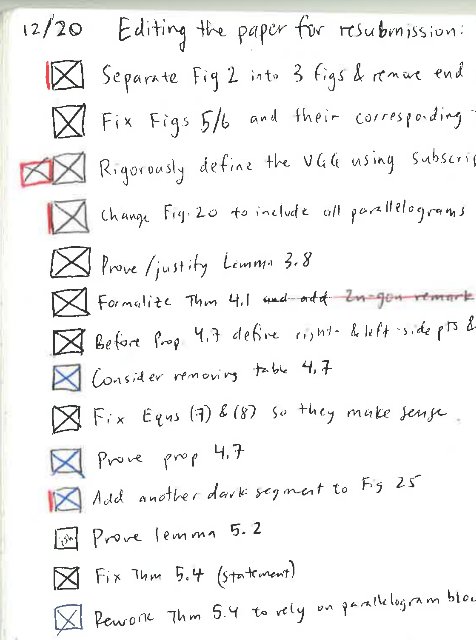 12/20 Editing the paper for resubmission:
Separate Fig 2 into 3 figs & remove end
Fix Figs 5/6 and their corresponding
Rigorously define the VGG using subscrip
Change Fig. 20 to include all parallelograms
Prove/justify Lemma 3.8
Formalize Thm 4.1 and add 2n-gon remark
Before Prop 4.7 define right- & left-side pts &
Consider removing table 4.7
Fix Equs (7) & (8) so they make sense
Prove prop 4.7
Add another dark segment to Fig 25
Prove lemma 5.2
Fix Thm 5.4 (statement)
Rework Thm 5.4 to rely on parallelogram bloc